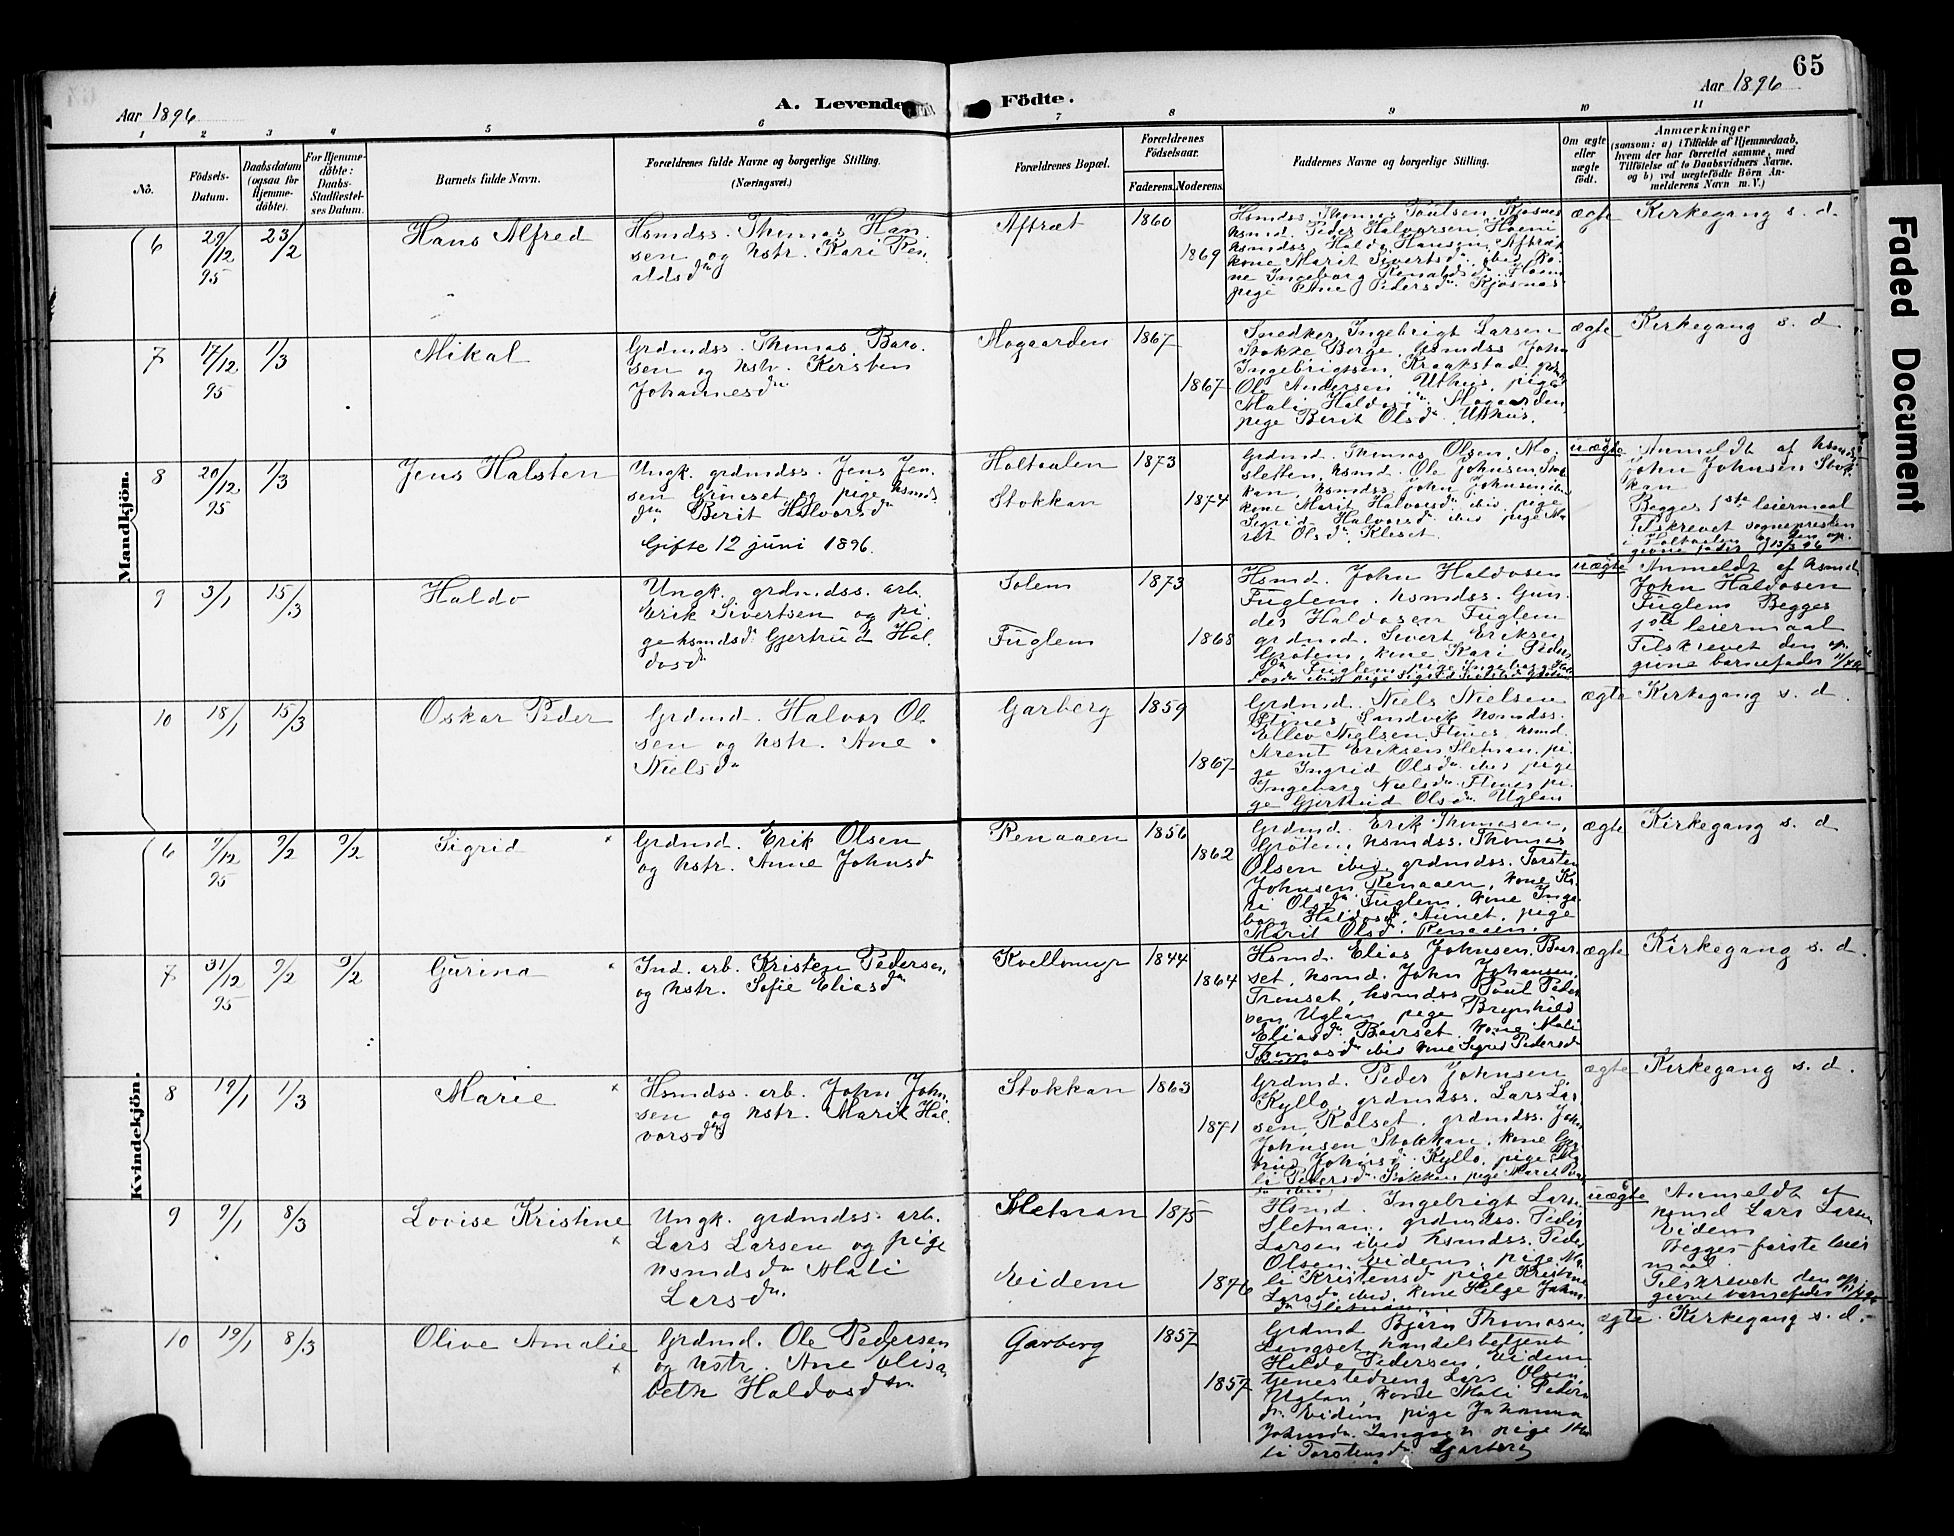 65
Aar 1896
A. Levende
Födte.
Aar 1896
1 2 3 4 5 6 7 8 9 10 11
No.
Födsels-
Datum.
Daabsdatum
(ogsaa for
Hjemme-
døbte).
For Hjemme-
døbte:
Daabs-
Stadfæstel-
ses Datum.
Barnets fulde Navn.
Forældrenes fulde Navne og borgerlige Stilling.
(Næringsvei.)
Forældrenes Bopæl.
Forældrenes
Fødselsaar.
Faderens. Moderens.
Faddernes Navne og borgerlige Stilling.
Om ægte
eller
uægte
født.
Anmærkninger
(saasom: a) i Tilfælde af Hjemmedaab,
hvem der har forrettet samme, med
Tilføielse af to Daabsvidners Navne,
og b) ved uægtefødte Børn An-
melderens Navn m. V.)
Mandkjön.
6 29/12 95 23/2
Hans Alfred
Hsmdss. Thomas Han
sen og hstr. Kari Ren
aldsdr
Aftræt
1860
1869
Hsmdss. Thomas Poulsen, Kjøsnæs
hsmd. Peder Halvorsen, Hoem
hsmdss. Haldo Hansen, Aftræt
kone Marit Sivertsdr. ibid ko
ne Ingeborg Renaldsdr. Hoem
pige Ane Pedersdr. Kjøsnæs
ægte
Kirkegang s. d.
7 17/12 95 1/3
Mikal
Grdmdss. Thomas Baro
sen og hstr. Kersten
Johannesdr
Mogaarden
1867
1867
Snedker Ingebrigt Larsen
Stokke Berge, Gsmdss John
Ingebrigtsen, Kraakstad, grdmd
Ole Andersen Uthus, pige
Mali Haldosdr Mogaarden,
pige Berit Olsdr. Uthus.
ægte
Kirkegang s. d
8 20/12 95 1/3
Jens Halsten
Ungk. grdmdss. Jens Jen
sen Grønset og pige hsmds
dr. Berit Halvorsdr
Gifte 12 juni 1896.
Holtaalen
Stokkan
1873
1874
Grdmd. Thomas Olsen, Mo
sletten, hsmd. Ole Johnsen, Stok
kan, hsmdss John Johnsen ibid
kone Marit Halvorsdr ibid, pige
Sigrid Halvorsdr ibid pige Ma
rit Olsdr. Kleset.
uægte
Anmeldt af hsmd.
John Johnsen Stok
kan
Begges 1ste leiermaal
Tilskrevet sognepresten
i Holtaalen og den op
givne fader 13/3 96
9 3/1 15/3
Haldo
Ungk. grdmdss. arb.
Erik Sivertsen og pi
ge hsmdsdr. Gjertrud Hal
dosdr
Solem
Fuglem
1873
1868
Hsmd. John Haldosen
Fuglem. hsmdss. Gun
der Haldosen Fuglem
grdmd. Sivert Eriksen
Grøten, kone Kari Peders
dr. Fuglem, pige Ingeborg Hal
dosdr ibid, pige Sigrid
uægte
Anmeldt af hsmd
John Haldosen
Fuglem Begges
1ste leiermaal
Tilskrevet den op
givne barnefader 11/4 96
10 18/1 15/3
Oskar Peder
Grdmd. Halvor Ol
sen og hstr. Ane
Nielsdr
Garberg
1859
1867
Grdmd. Niels Nielsen
Stines, Sandvik hsmdss.
Ellev Nielsen, Flønes, hsmd.
Arent Eriksen Sletnan, pi
ge Ingrid Olsdr ibid, pige
Ingeborg Nielsdr. Flønes pi
ge Gjertrud Olsdr. Uglan
ægte
Kirkegang s. d.
Kvindekjön.
6 9/12 95 9/2 9/2
Sigrid ×
Grdmd. Erik Olsen
og hstr. Anne Johnsdr
Renaaen
1856
1862
Grdmd. Erik Thomesen,
Grøten, hsmdss. Thomas
Olsen ibid, grdmdss. Torsten
Johnsen Renaaen, kone Ka
ri Olsdr. Fuglem, kone Inge
borg Haldosdr. Aunet, pige
Marit Olsdr. Renaaen.
ægte
Kirkegang s. d
7 31/12 95 9/2 9/2
Gurina ×
Ind. arb. Kristen Pedersen,
og hstr. Sofie Eliasdr
Kvellomyr
1844
1864
Hsmd. Elias Johnsen, Bur
set, hsmd. John Johansen,
Trønset, hsmdss. Poul Peder
sen, Uglan, pige Brynhild
Eliasdr. Burset, kone Mali
Thomasdr ibid kone Sigrid Pedersdr
ægte
Kirkegang s. d.
8 19/1 1/3
Marie ×
Hsmdss. arb. John John
sen og hstr. Marit Hal
vorsdr
Stokkan
1863
1871
Grdmd. Peder Johnsen,
Kyllo, grdmdss. Lars Lar
sen, Rolset, grdmdss. John
Johnsen Stokkan, kone Ger
trud Johnsdr. Kyllo, pige Ma
li Pedersdr. Stokkan, pige Marit
ægte
Kirkegang s. d.
9 9/1 8/3
Lovise Kristine ×
Ungk. grdmdss. arb.
Lars Larsen og pige
hsmdsdr Mali
Larsdr.
Sletnan
Eidem
1875
1876
Hsmd. Ingebrigt Larsen
Sletnan, grdmdss. Peder
Larsen ibid hsmdss. Peder
Olsen, Eidem, pige Ma
li Kristensdr pige Kristine
Larsdr ibid, kone Helge Johns
dr Sletnan
uægte
Anmeldt af
hsmd Lars Larsen
Eidem
Begges første leier
maal
Tilskrevet den op
givne barnefader
10 19/1 8/3
Olive Amalie ×
Grdmd. Ole Pedersen
og hstr. Ane Elisa
beth Haldosdr.
Garberg
1857
1857
Grdmd Bjørn Thomasen,
Langset, handelsbetjent
Haldo Pedersen, Eidem
tjenestedreng Lars Olsen,
Uglan, kone Mali Peders
dr. Eidem pige Johanna
Johnsdr. Langset pige Ma
li Torstensdr. Garberg
ægte
Kirkegang s. d.
Faded Document